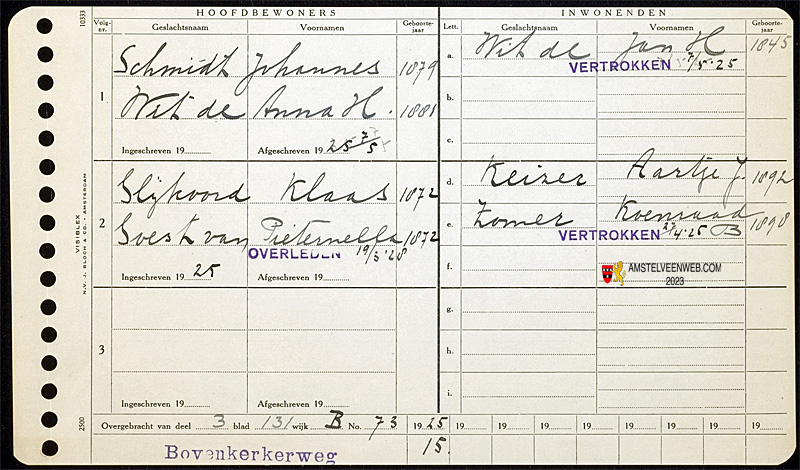 HOOFDBEWONERS
INWONENDEN
10333
Volg-nr.
Geslachtsnaam
Voornamen
Geboorte-jaar
Lett.
Geslachtsnaam
Voornamen
Geboorte-jaar
1
Schmidt Johannes 1879
Wit de Anna H. 1881
Ingeschreven 19
Afgeschreven 19 25 7/5
a. Wit de Jan H 1845
VERTROKKEN 7/5-25
b.
c.
2
Slijkoord Klaas 1872
Goest van Pieternella 1872
OVERLEDEN 19/3'28
Ingeschreven 19 25
Afgeschreven 19
d. Keizer Aartje J. 1892
e. Zomer Koenraad 1898
VERTROKKEN 27/4-25 B
f.
AMSTELVEENWEB.COM
2023
3
Ingeschreven 19
Afgeschreven 19
g.
h.
i.
VISIBLEX
N.V. J. BLOCH & CO. - AMSTERDAM
2500
Overgebracht van deel 3 blad 131 wijk B No. 73 19 25 19 19 19 19 19 19 19 19
Bovenkerkerweg 15.